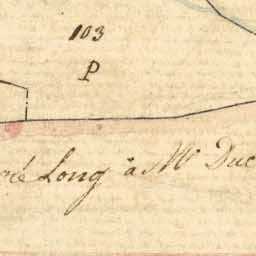 103
P
Long à Mr Duc